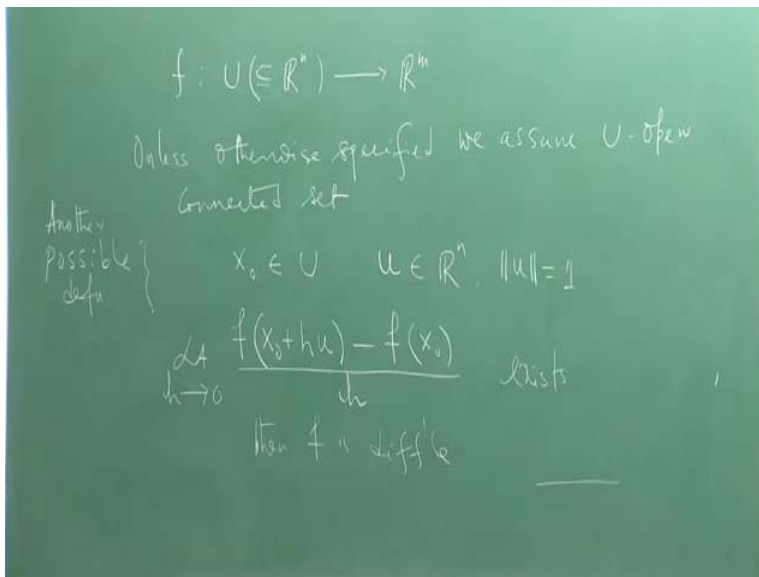 f : U (⊆ ℝⁿ) ⟶ ℝᵐ
Unless otherwise specified we assume U - open
connected set
Another
possible
defn }
x₀ ∈ U   u ∈ ℝⁿ, ‖u‖ = 1
Lt h→0 (f(x₀+hu) − f(x₀)) / h exists
then f is diff'le